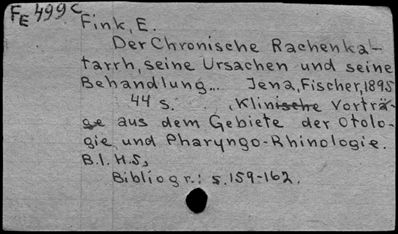 FE 499c
Fink, E.
Der Chronische Rachenka-
tarrh, seine Ursachen und seine
Behandlung... Jena, Fischer, 1895
44 s. (Klinische Vorträ-
ge aus dem Gebiete der Otolo-
gie und Pharyngo-Rhinologie.
B.I. H.5,
Bibliogr.: s. 159-162.